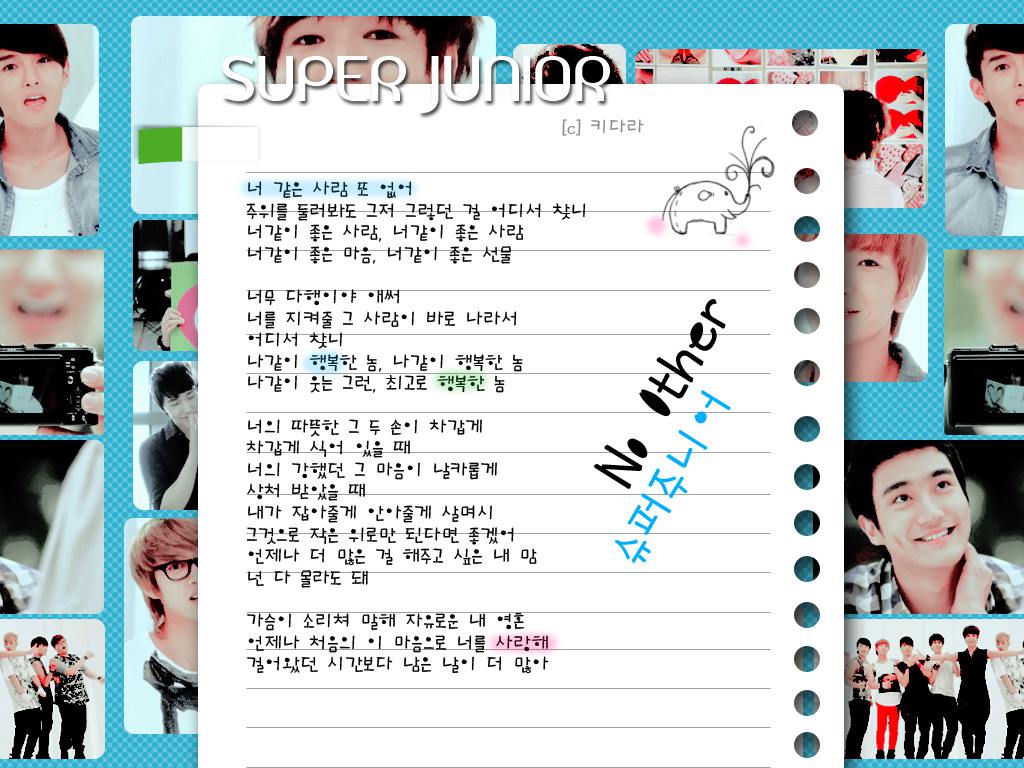 SUPER JUNIOR
[c] 키다라
너 같은 사람 또 없어
주위를 둘러봐도 그저 그렇던 걸 어디서 찾니
너같이 좋은 사람, 너같이 좋은 사람
너같이 좋은 마음, 너같이 좋은 선물
너무 다행이야 애써
너를 지켜줄 그 사람이 바로 나라서
어디서 찾니
나같이 행복한 놈, 나같이 행복한 놈
나같이 웃는 그런, 최고로 행복한 놈
너의 따뜻한 그 두 손이 차갑게
차갑게 식어 있을 때
너의 강했던 그 마음이 날카롭게
상처 받았을 때
내가 잡아줄게 안아줄게 살며시
그것으로 작은 위로만 된다면 좋겠어
언제나 더 많은 걸 해주고 싶은 내 맘
넌 다 몰라도 돼
가슴이 소리쳐 말해 자유로운 내 영혼
언제나 처음의 이 마음으로 너를 사랑해
걸어왔던 시간보다 남은 날이 더 많아
No Other
슈퍼주니어